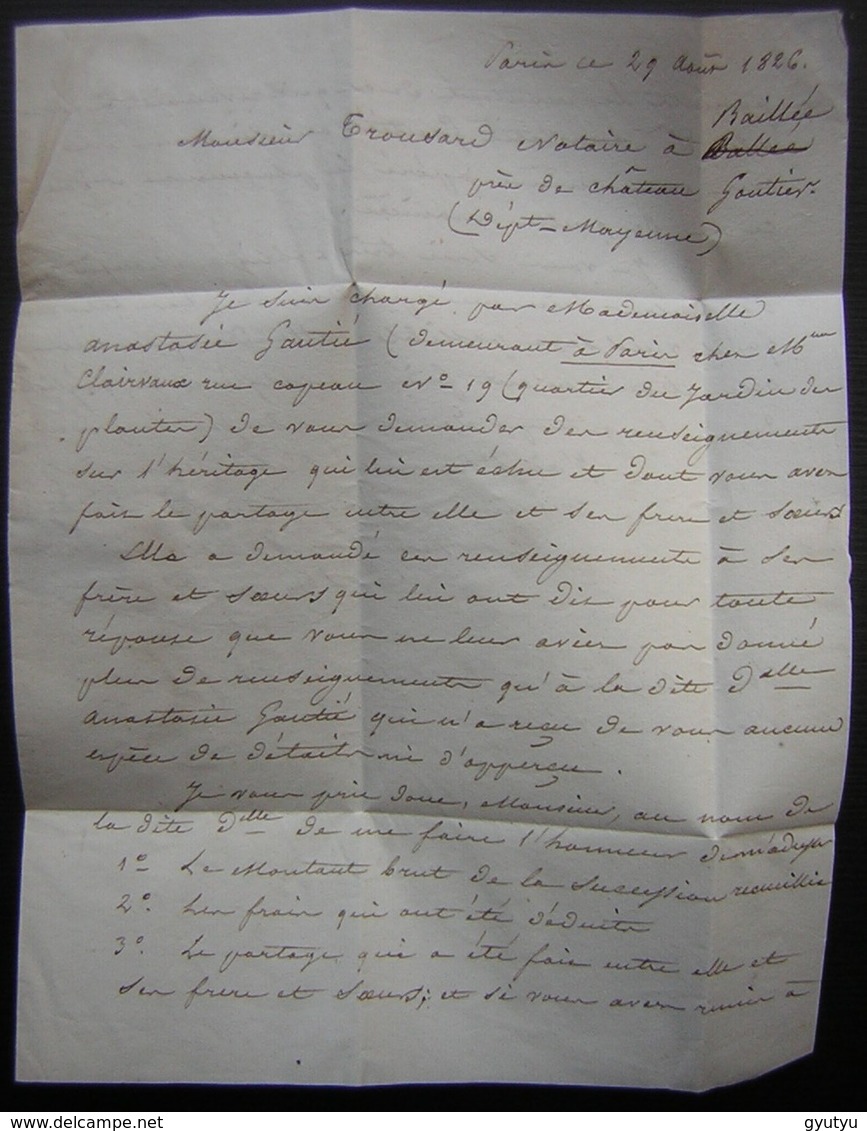 Paris ce 29 Août 1826.
Monsieur Trousard Notaire à Baillée
Ballée
près de Château Gontier.
(Dépt- Mayenne)
Je suis chargé par Mademoiselle
anastasie Gautié (demeurant à Paris chez Mme
Clairvaux rue copeau No 19 (quartier du Jardin des
plantes) de vous demander des renseignements
sur l'héritage qui lui est échu et dont vous avez
fait le partage entre elle et ses frere et sœurs
Elle a demandé ces renseignements à ses
frère et sœurs qui lui ont dit pour toute
réponse que vous ne leur aviez pas donné
plus de renseignements qu'à la dite Dlle
anastasie Gautié qui n'a reçu de vous aucune
espèce de détails ni d'apperçu.
Je vous prie donc, Monsieur, au nom de
la dite Dlle de me faire l'honneur de m'adresser
1o Le Montant brut de la succession recueillie
2o. Les frais qui ont été déduits
3o. Le partage qui a été fait entre elle et
ses frere et sœurs; et si vous avez remis à
www.delcampe.net
gyutyu